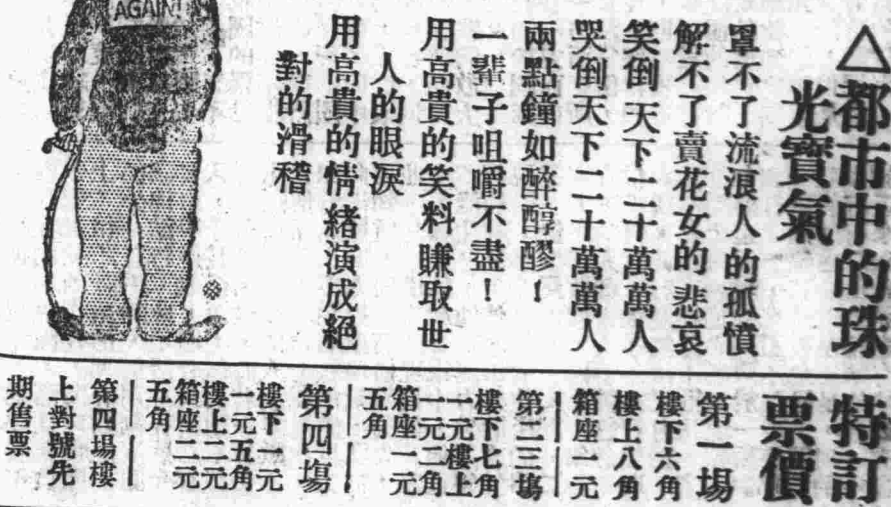 △都市中的珠
光寶氣
罩不了流浪人的孤憤
解不了賣花女的悲哀
笑倒天下二十萬萬人
哭倒天下二十萬萬人
兩點鐘如醉醇醪！
一輩子咀嚼不盡！
用高貴的笑料賺取世
人的眼淚
用高貴的情緒演成絕
對的滑稽
AGAIN!
特訂
票價
第一場
樓下六角
樓上八角
箱座一元
第二三場
樓下七角
一元樓上
一元二角
箱座一元
五角
第四塲
樓下一元
一元五角
樓上二元
箱座二元
五角
第四場樓
上對號先
期售票